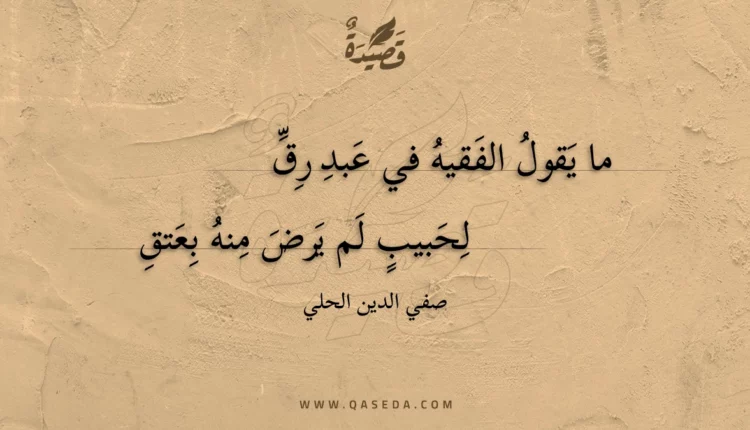 قَصِيدَةٌ
ما يَقولُ الفَقيهُ في عَبدِ رِقِّ
لِحَبيبٍ لَم يَرضَ مِنهُ بِعَتقِ
صفي الدين الحلي
WWW.QASEDA.COM